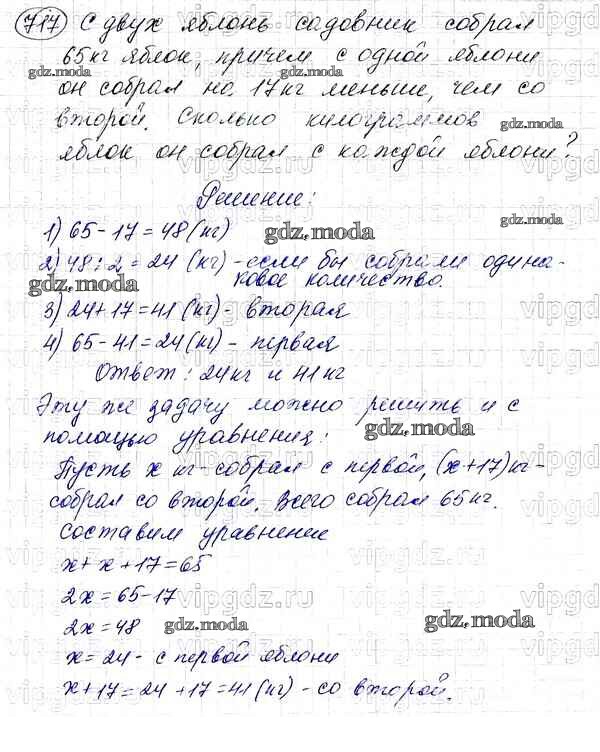 717 С двух яблонь садовник собрал
65 кг яблок, причем с одной яблони
он собрал на 17 кг меньше, чем со
второй. Сколько килограммов
яблок он собрал с каждой яблони?
Решение:
1) 65 - 17 = 48 (кг)
2) 48 : 2 = 24 (кг) - если бы собрали одина-
ковое количество.
3) 24 + 17 = 41 (кг) - вторая
4) 65 - 41 = 24 (кг) - первая
Ответ: 24 кг и 41 кг
Эту же задачу можно решить и с
помощью уравнения:
Пусть х кг - собрал с первой, (х + 17) кг -
собрал со второй. Всего собрал 65 кг.
Составим уравнение
х + х + 17 = 65
2х = 65 - 17
2х = 48
х = 24 - с первой яблони
х + 17 = 24 + 17 = 41 (кг) - со второй.
gdz.moda
gdz.moda
gdz.moda
gdz.moda
gdz.moda
gdz.moda
gdz.moda
gdz.moda
gdz.moda
gdz.moda
gdz.moda
vipgdz.ru